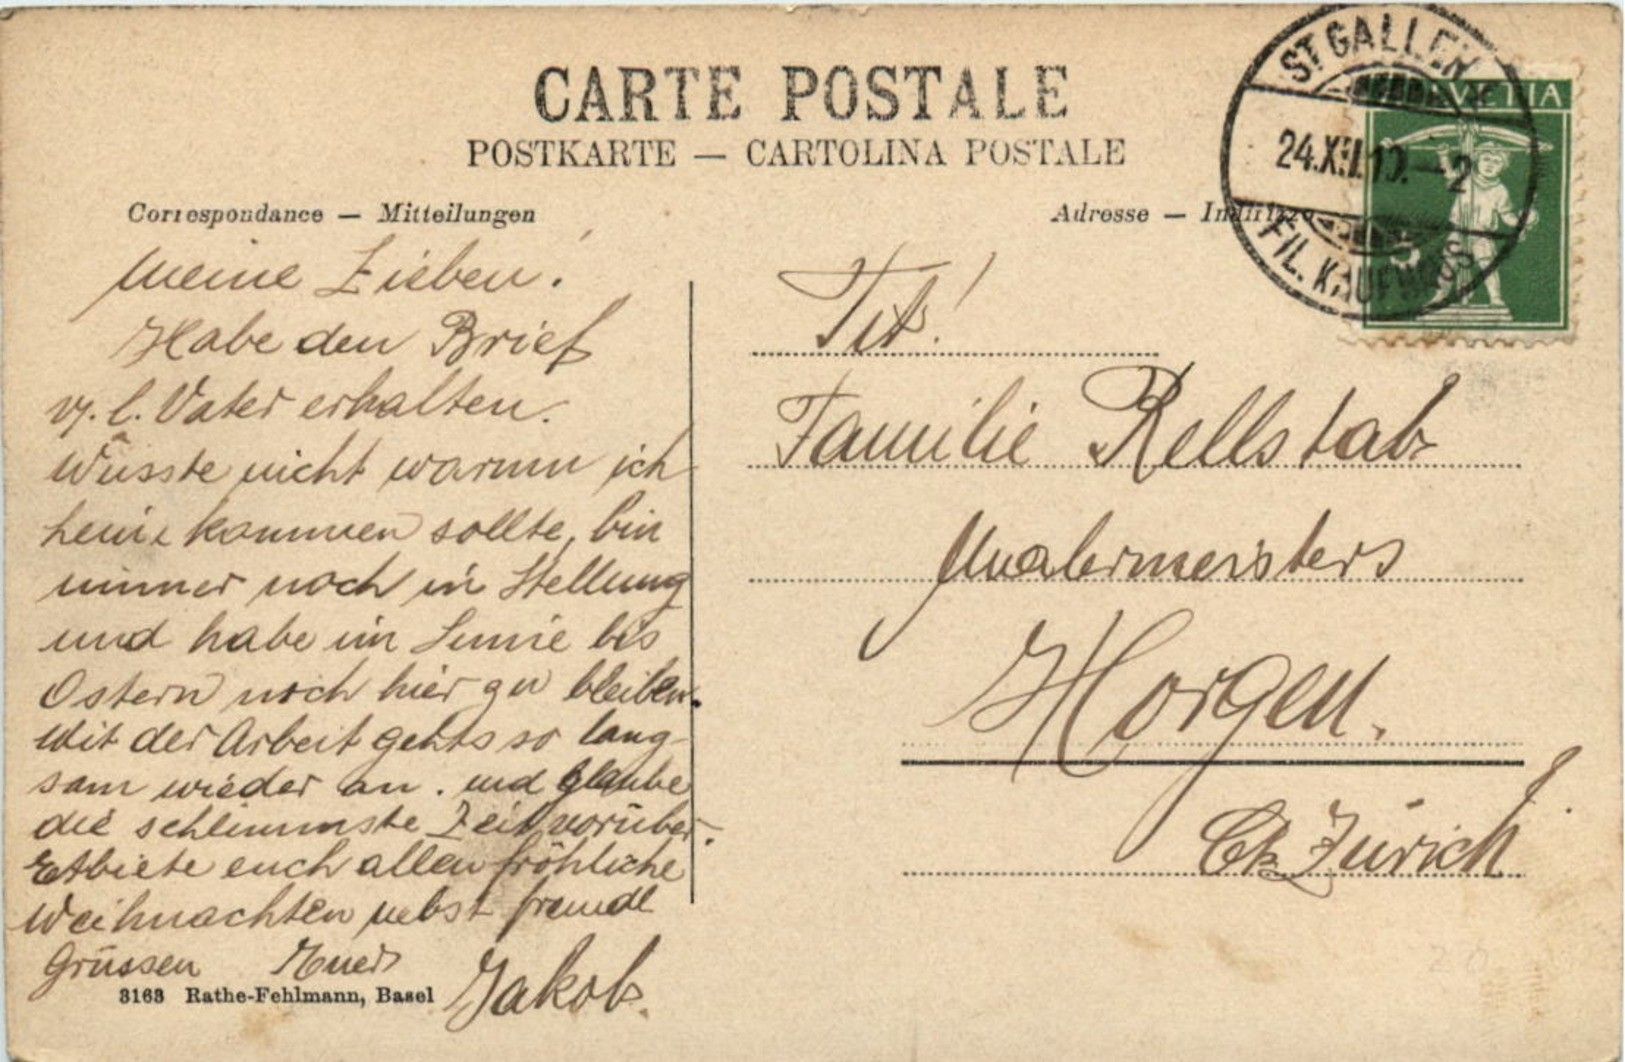 CARTE POSTALE
POSTKARTE — CARTOLINA POSTALE
Correspondance — Mitteilungen
Adresse — Indirizzo
ST. GALLEN
24.XII.10.—2
FIL. KAUFHAUS
HELVETIA
5
Meine Lieben!
Habe den Brief
v. l. Vater erhalten.
Wüsste nicht warum ich
heim kommen sollte, bin
immer noch in Stellung
und habe im Sinne bis
Ostern noch hier zu bleiben.
Mit der Arbeit gehts so lang-
sam wieder an. und glaube
die schlimmste Zeit vorüber.
Entbiete euch allen fröhliche
Weihnachten nebst freundl
Grüssen Euer
Jakob.
3163 Rathe-Fehlmann, Basel
Tit!
Familie Rellstab
Malermeisters
Horgen.
Ct. Zürich